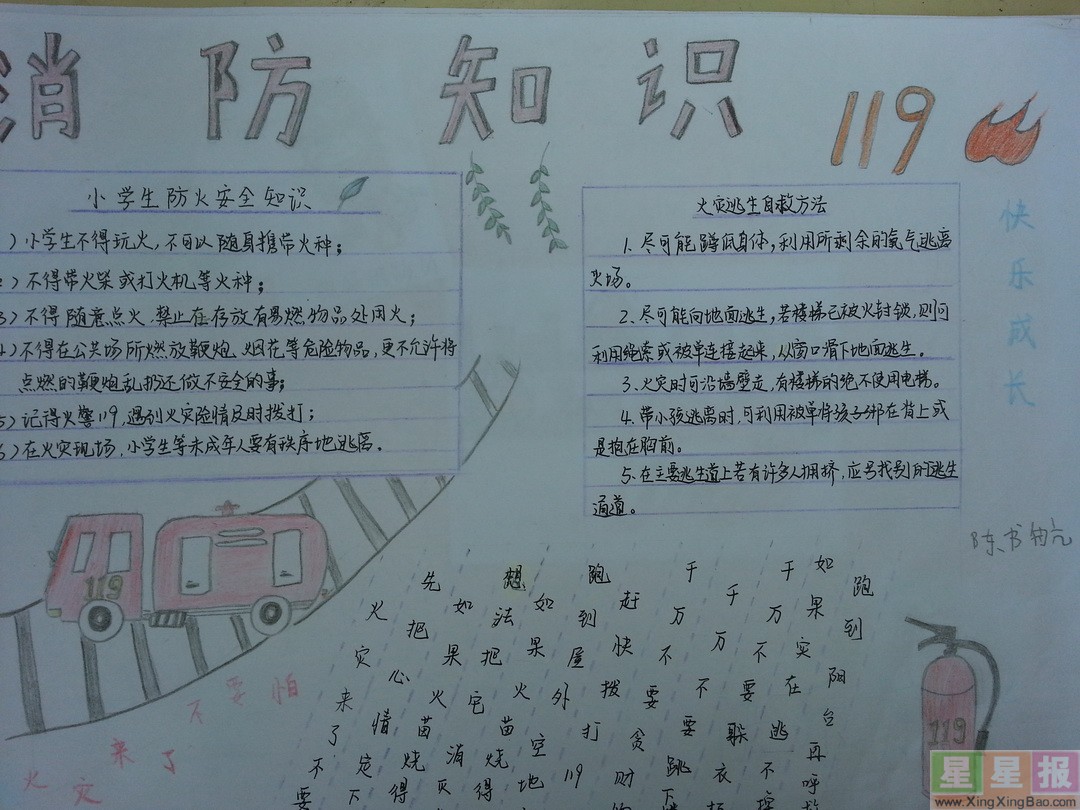 消防知识
119
小学生防火安全知识
）小学生不得玩火，不可以随身携带火种；
）不得带火柴或打火机等火种；
3）不得随意点火，禁止在存放有易燃物品处用火；
4）不得在公共场所燃放鞭炮、烟花等危险物品，更不允许将
点燃的鞭炮乱扔还做不安全的事；
5）记得火警119，遇到火灾险情及时拨打；
）在火灾现场，小学生等未成年人要有秩序地逃离．
火灾逃生自救方法
1．尽可能蹲低身体，利用所剩余的氧气逃离
火场。
2．尽可能向地面逃生，若楼梯已被火封锁，则可
利用绳索或被单连接起来，从窗口滑下地面逃生。
3．火灾时可沿墙壁走，有楼梯的绝不使用电梯。
4．带小孩逃离时，可利用被单将孩子绑在背上或
是抱在胸前。
5．在主要逃生道上若有许多人拥挤，应另找别的逃生
通道。
快乐成长
陈书
119
火灾来了
不要怕
火灾来了不要
先把心情定下
如果火苗烧得
想法把它消灭
如果火苗烧得
跑到屋外空地
赶快拨打119
千万不要贪财
千万不要跳
千万不要躲衣
如果灾在逃不
跑到阳台再呼
119
星星报
www.XingXingBao.com